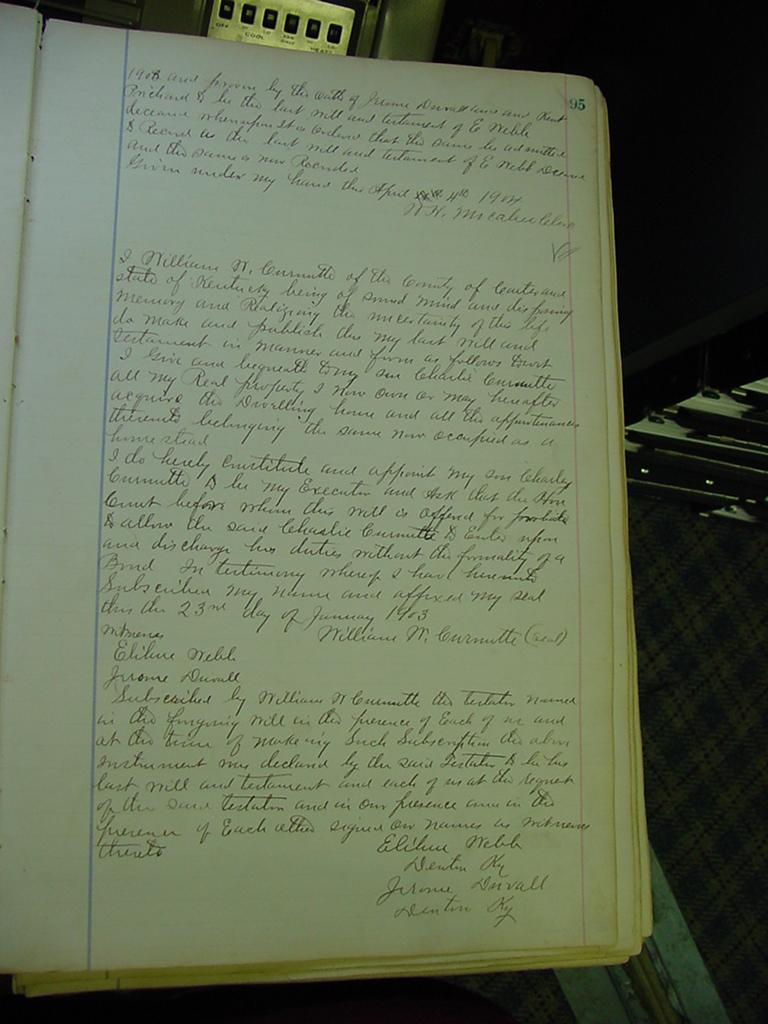 OFF LO HI LO HI
COOL HEAT
95
1903 and proven by the oath of Jerome Duvall and Kent
Prichard to be the last will and testament of E Webb
deceased whereupon It is Ordered that the same be admitted
to Record as the last will and testament of E Webb Deceased
and the same is now Recorded
Given under my hand this April 4th 1904
W.H. McCabe Clerk
I William W. Curnutte of the County of Carter and
state of Kentucky being of sound mind and disposing
memory and Realizing the uncertainty of this life
do make and publish this my last will and
testament in manner and form as follows towit
I Give and bequeath to my son Charlie Curnutte
all my Real property I now own or may hereafter
acquire the Dwelling house and all the appurtenances
thereunto belonging the same now occupied as a
homestead
I do hereby Constitute and appoint my son Charley
Curnutte to be my Executor and Ask that the Hon
Court before whom this will is offered for probate
to allow the said Charlie Curnutte to Enter upon
and discharge his duties without the formality of a
Bond In testimony whereof I have hereunto
Subscribed my name and affixed my seal
this the 23rd day of January 1903
William W. Curnutte (seal)
Witnesses
Elihue Webb
Jerome Duvall
Subscribed by William W Curnutte the testator named
in the forgoing will in the presence of Each of us and
at the time of makeing Such Subscription the above
instrument was declared by the said Testator to be his
last will and testament and each of us at the request
of the said testator and in our presence and in the
presence of Each other signed our names as witnesses
thereto
Elihue Webb
Denton Ky
Jerome Duvall
Denton Ky